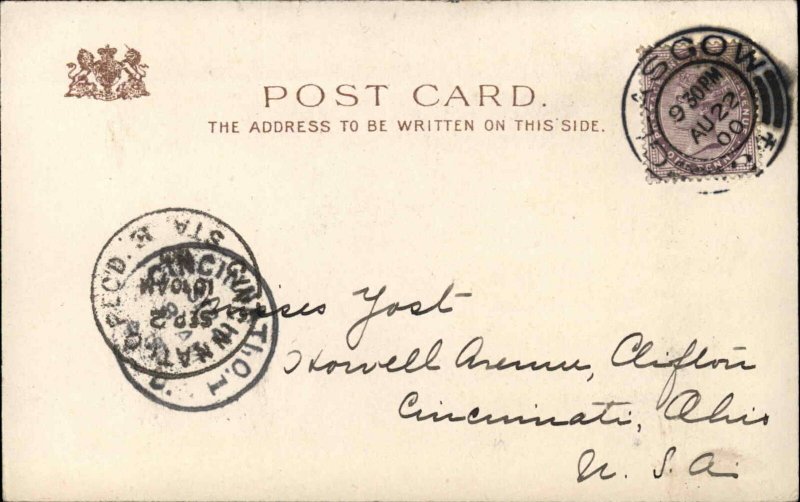 POST CARD.
THE ADDRESS TO BE WRITTEN ON THIS SIDE.
GLASGOW
9 30PM
AU 22
00
CINCINNATI, O.
REC'D.
STA
10 AM
SEP 2
Misses Yost
Howell Avenue, Clifton
Cincinnati, Ohio
U. S. A.